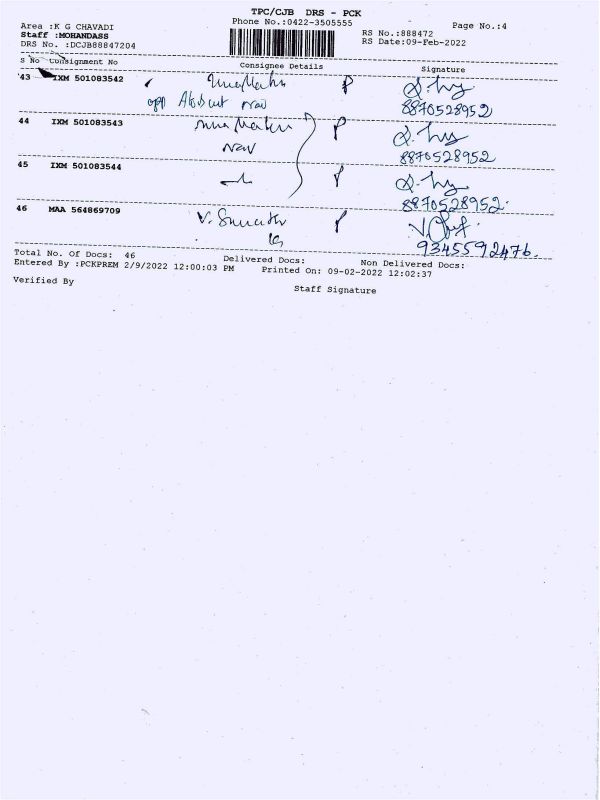 TPC/CJB DRS - PCK
Phone No.:0422-3505555
Page No.:4
Area :K G CHAVADI
Staff :MOHANDASS
DRS No. :DCJB88847204
RS No.:888472
RS Date:09-Feb-2022
S No Consignment No Consignee Details Signature
43 IXM 501083542 P
opp
8870528952
44 IXM 501083543 P
8870528952
45 IXM 501083544 P
8870528952.
46 MAA 564869709 V. P
9345592476.
Total No. Of Docs: 46 Delivered Docs: Non Delivered Docs:
Entered By :PCKPREM 2/9/2022 12:00:03 PM Printed On: 09-02-2022 12:02:37
Verified By Staff Signature